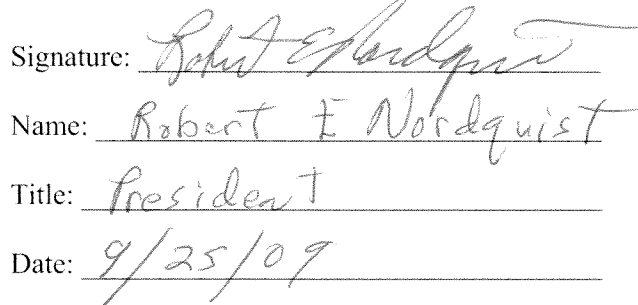 Signature: Robert E Nordquist
Name: Robert E Nordquist
Title: President
Date: 9/25/09